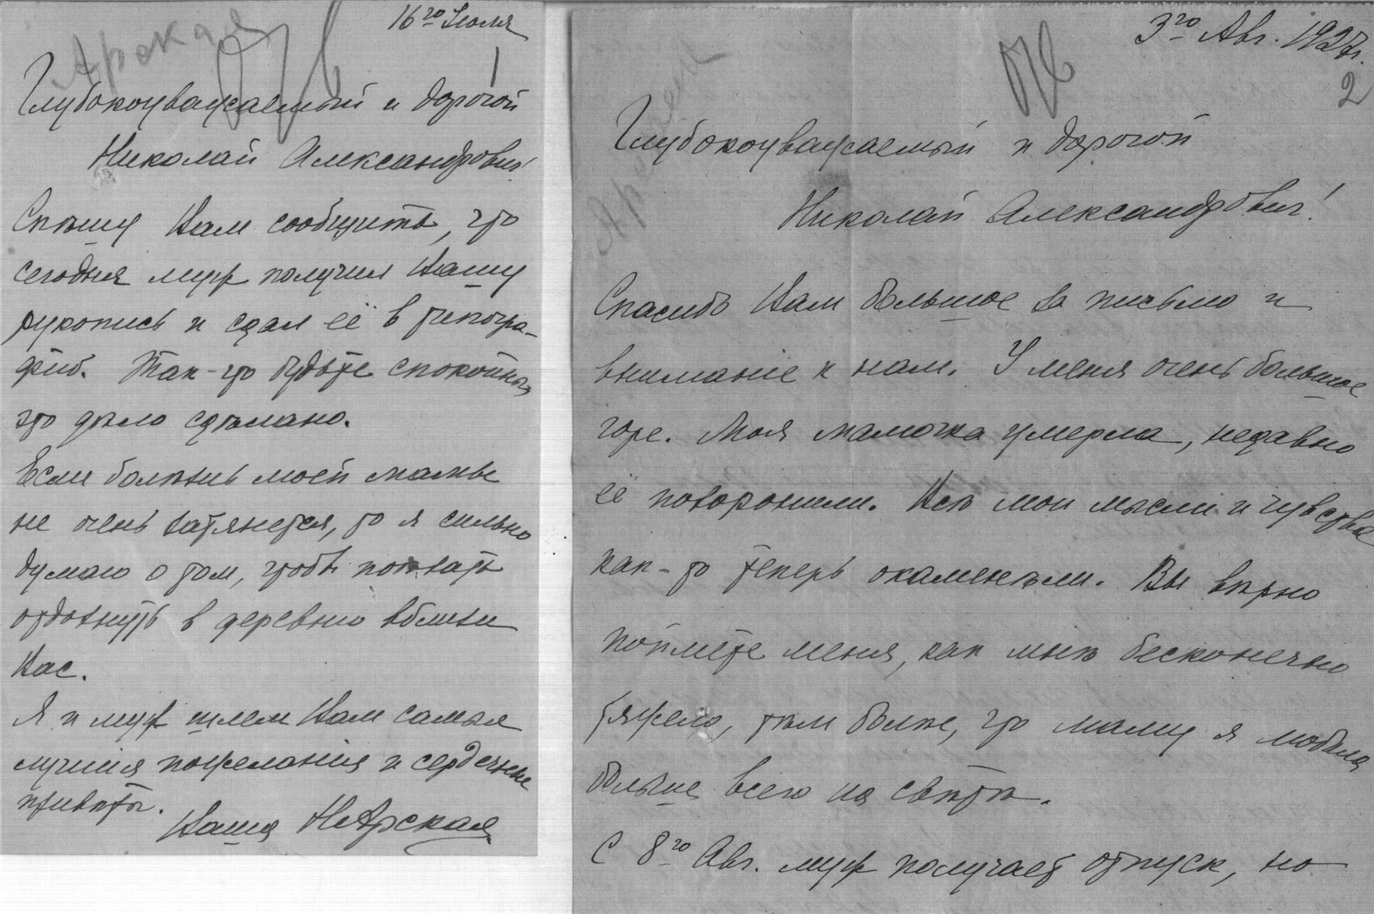 Арская
16го Июля
Глубокоуважаемый и дорогой
Николай Александрович!
Спѣшу Вам сообщить, что
сегодня муж получил Вашу
рукопись и сдал её в типогра-
фію. Так-что будьте спокойны,
что дѣло сдѣлано.
Если болѣзнь моей мамы
не очень затянется, то я сильно
думаю о том, чтобы поѣхать
отдохнуть в деревню вблизи
Вас.
Я и муж шлем Вам самыя
лучшія пожеланія и сердечные
привѣты.
Ваша Н Арская
3го Авг. 1927г.
2
Арская
Глубокоуважаемый и дорогой
Николай Александрович!
Спасибо Вам большое за письмо и
вниманіе к нам. У меня очень большое
горе. Моя мамочка умерла, недавно
её похоронили. Всѣ мои мысли и чувства
как-то теперь окаменѣли. Вы вѣрно
поймете меня, как мнѣ бесконечно
тяжело, тѣм болѣе, что маму я любила
больше всего на свѣтѣ.
С 8го Авг. муж получает отпуск, но